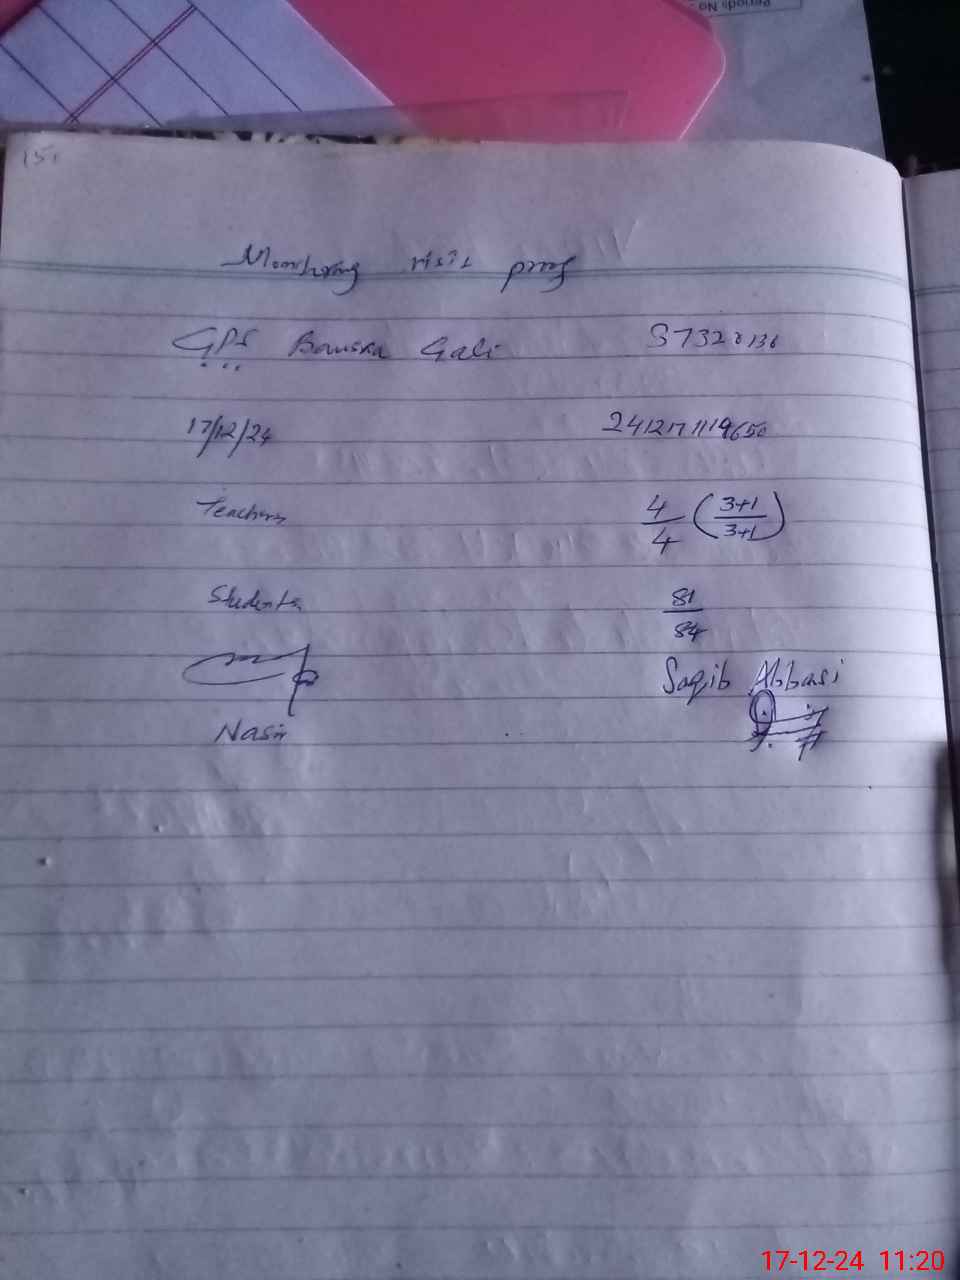 Periods No
151
Monitoring visit proof
GPS Banska Gali 37320136
17/12/24 2412171119650
Teachers 4/4 (3+1/3+1)
Students 81/84
Saqib Abbasi
Nasir
17-12-24 11:20